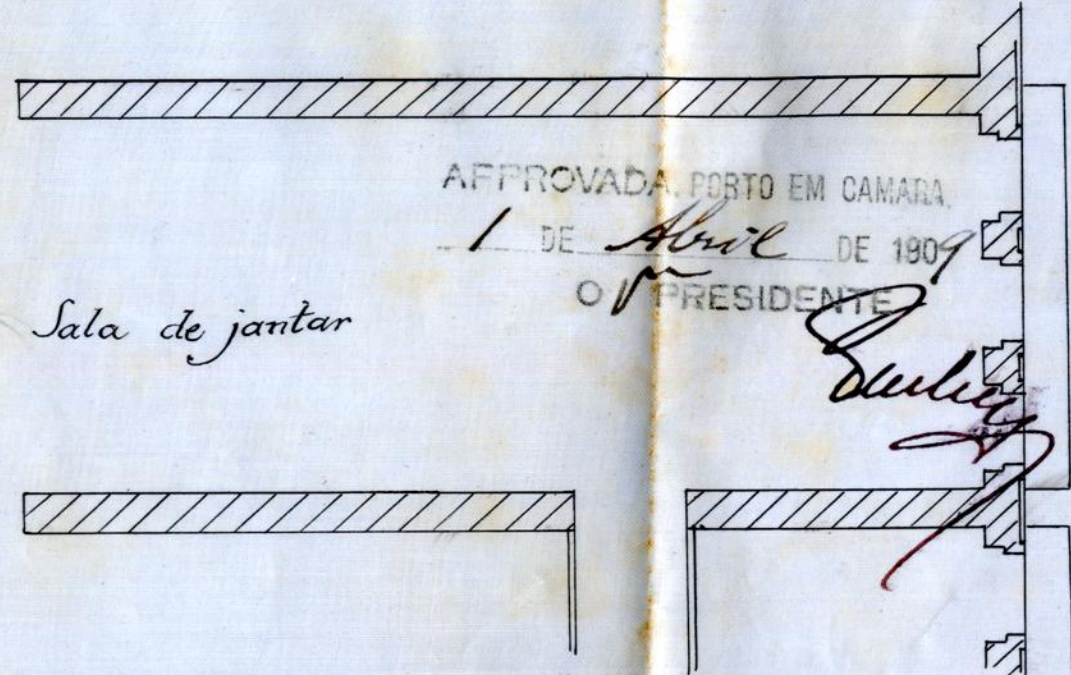 APPROVADA. PORTO EM CAMARA,
1 DE Abril DE 1909
O PRESIDENTE
Sala de jantar